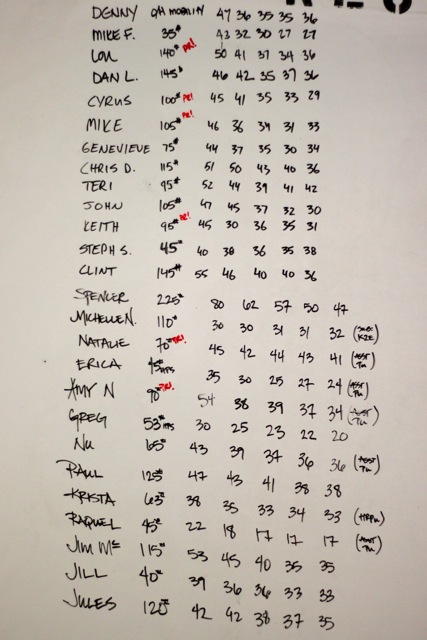 DENNY O/H MOBILITY 47 36 35 35 36
MIKE F. 35# 43 32 30 27 27
LOU 140# PR! 50 41 37 34 36
DAN L. 145# 46 42 35 37 36
CYRUS 100# PR! 45 41 35 33 29
MIKE 105# PR! 46 36 34 31 33
GENEVIEVE 75# 44 37 35 30 34
CHRIS D. 115# 51 50 43 40 36
TERI 95# 52 44 39 41 42
JOHN 105# 47 45 37 32 30
KEITH 95# PR! 45 30 36 35 31
STEPH S. 45# 40 38 36 35 38
CLINT 145# 55 46 40 40 36
SPENCER 225# 80 62 57 50 47
MICHELLE N. 110# 30 30 31 31 32 (K2E)
NATALIE 70# PR! 45 42 44 43 41 (ASST PU)
ERICA 45# HPS 35 30 25 27 24 (ASST PU)
AMY N 90# PR! 54 38 39 37 34 (ASST PU)
GREG 53# HPS 30 25 23 22 20
NU 65# 43 39 37 36 36 (ASST PU)
PAUL 125# 47 43 41 38 38
KRISTA 63# 38 35 33 34 33 (HRPU)
RAQUEL 45# 22 18 17 17 17 (PU)
JIM Mc 115# 53 45 40 35 35
JILL 40# 39 36 36 33 33
JULES 120# 42 42 38 37 35